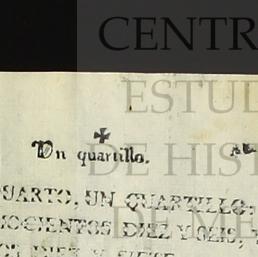 CENTR
ESTUD
DE HIS
DE ME
Un quartillo.
UARTO, UN QUARTILLO,
OCIENTOS DIEZ Y SEIS,